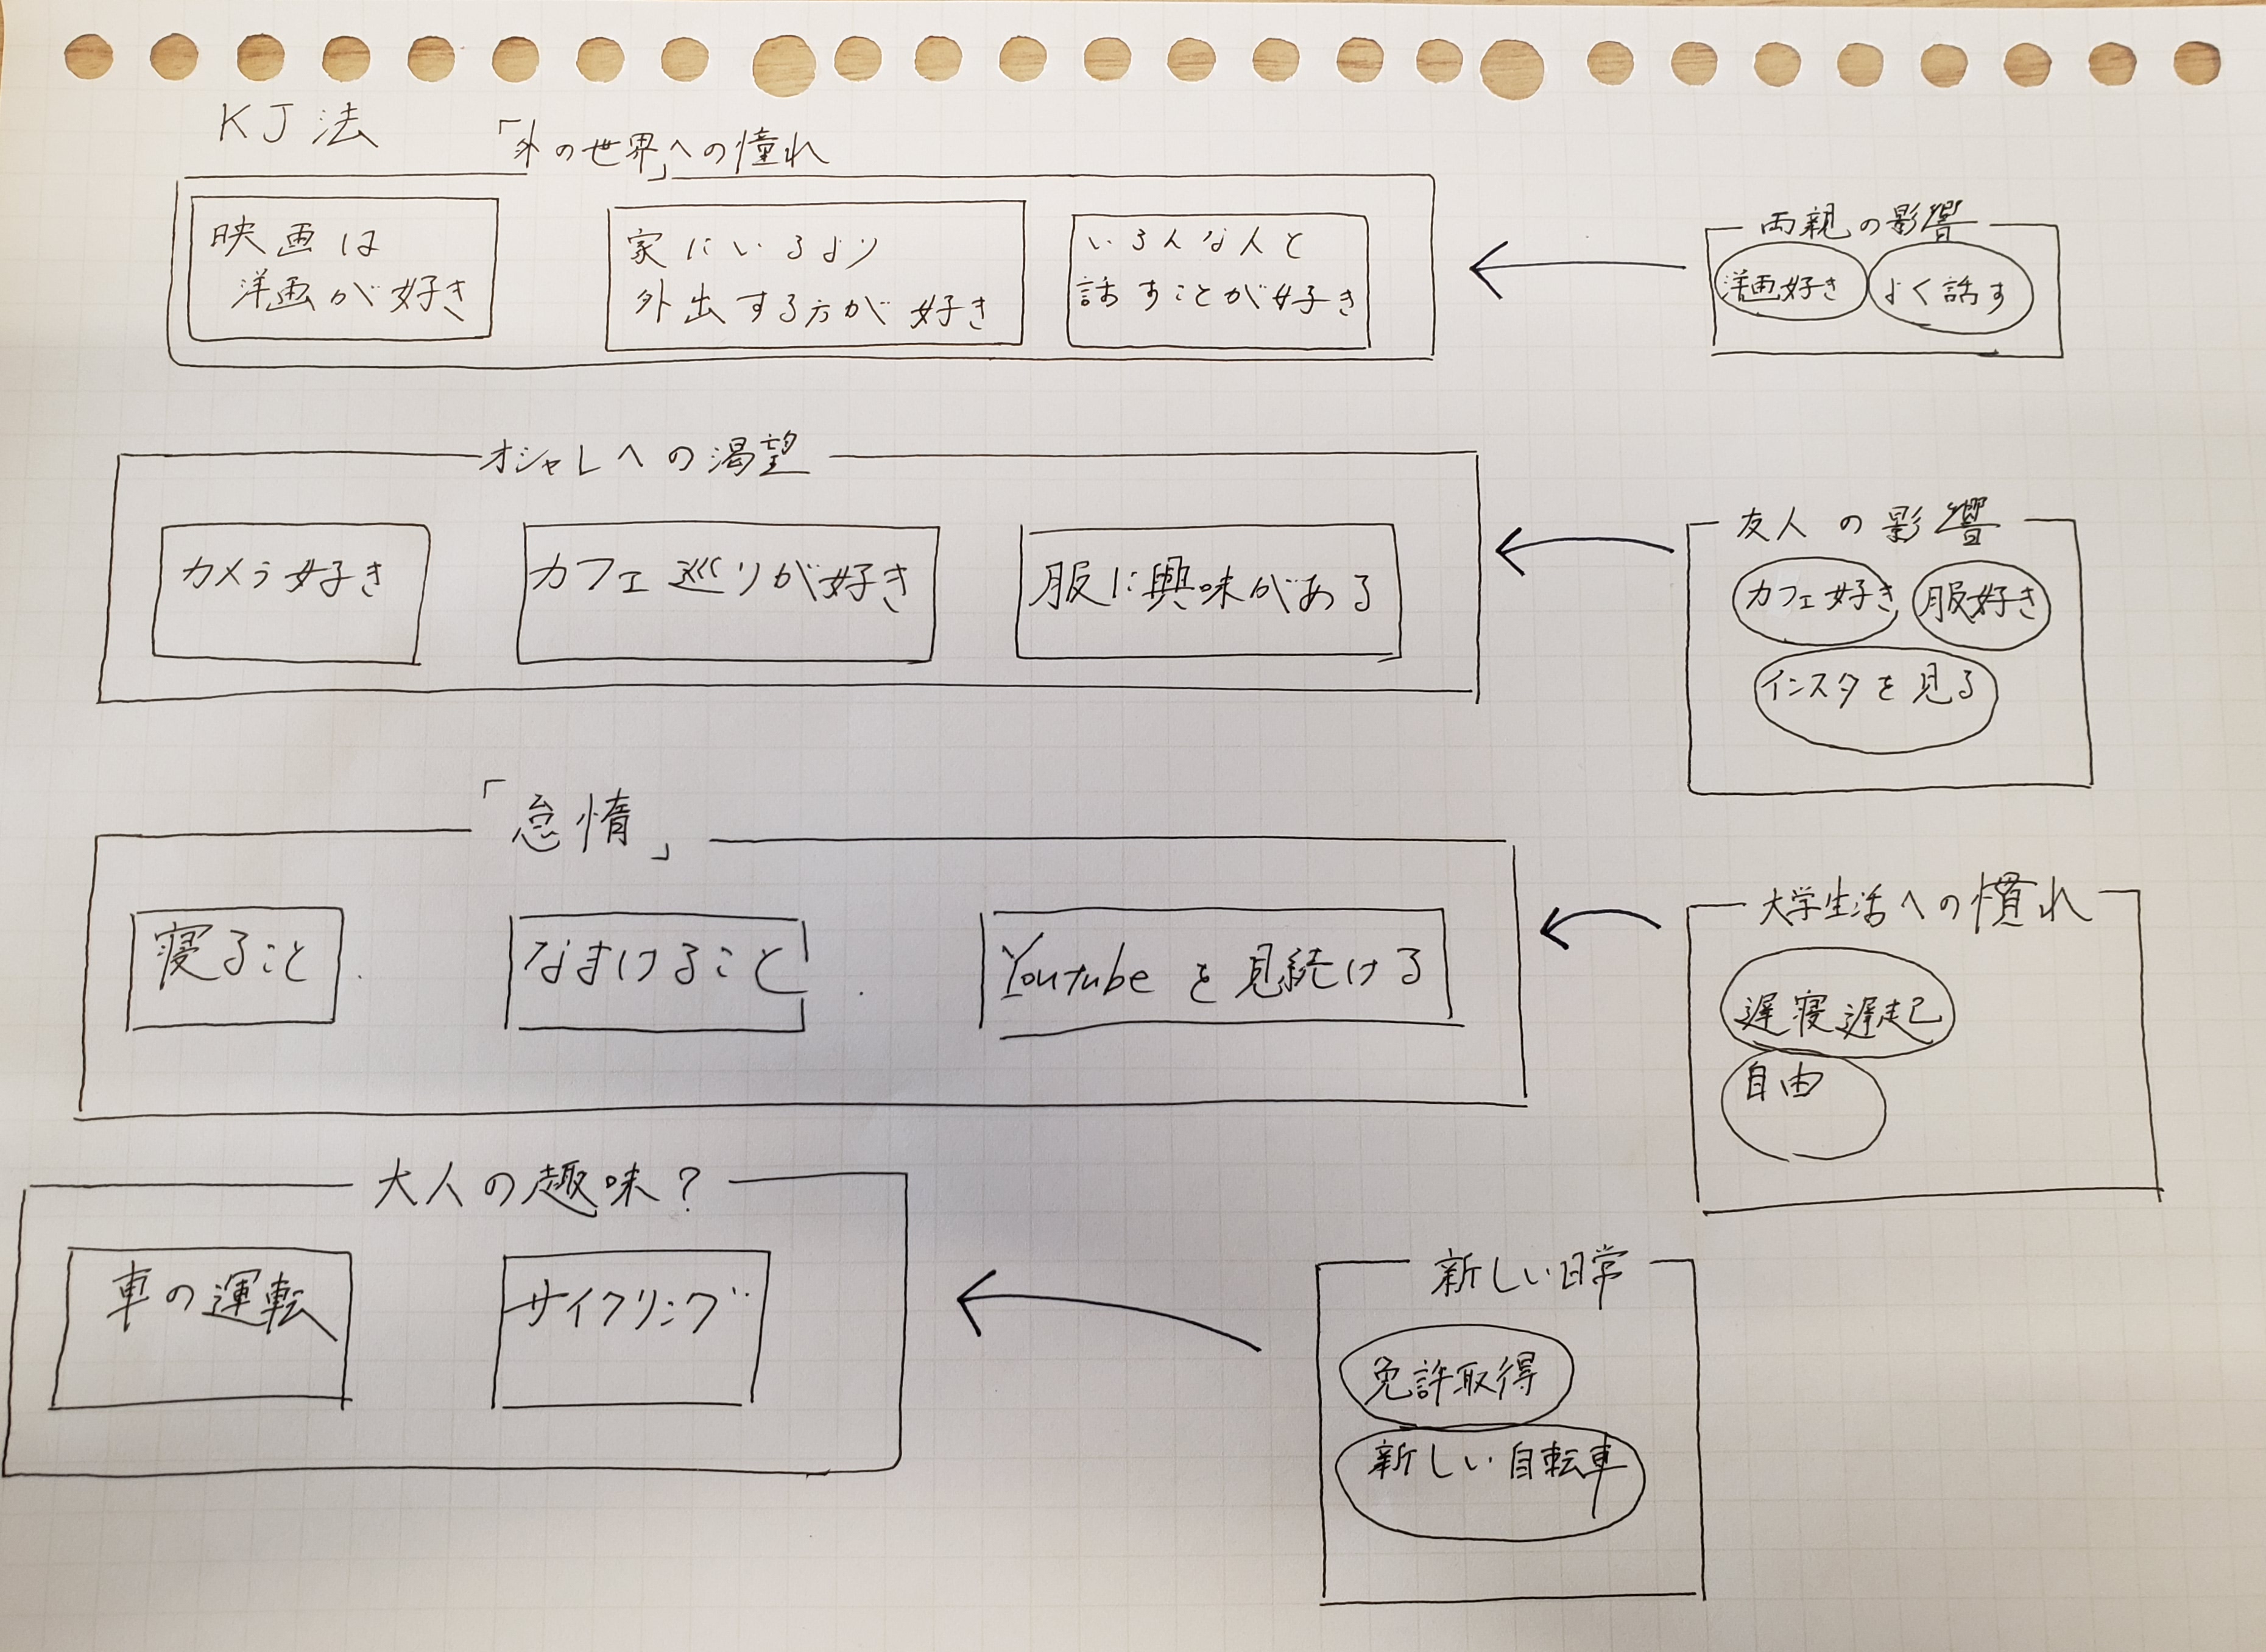 KJ法
「外の世界」への憧れ
映画は
洋画が好き
家にいるより
外出する方が好き
いろんな人と
話すことが好き
両親の影響
洋画好き
よく話す
オシャレへの渇望
カメラ好き
カフェ巡りが好き
服に興味がある
友人の影響
カフェ好き
服好き
インスタを見る
「怠惰」
寝ること
なまけること
Youtubeを見続ける
大学生活への慣れ
遅寝遅起
自由
大人の趣味?
車の運転
サイクリング
新しい日常
免許取得
新しい自転車